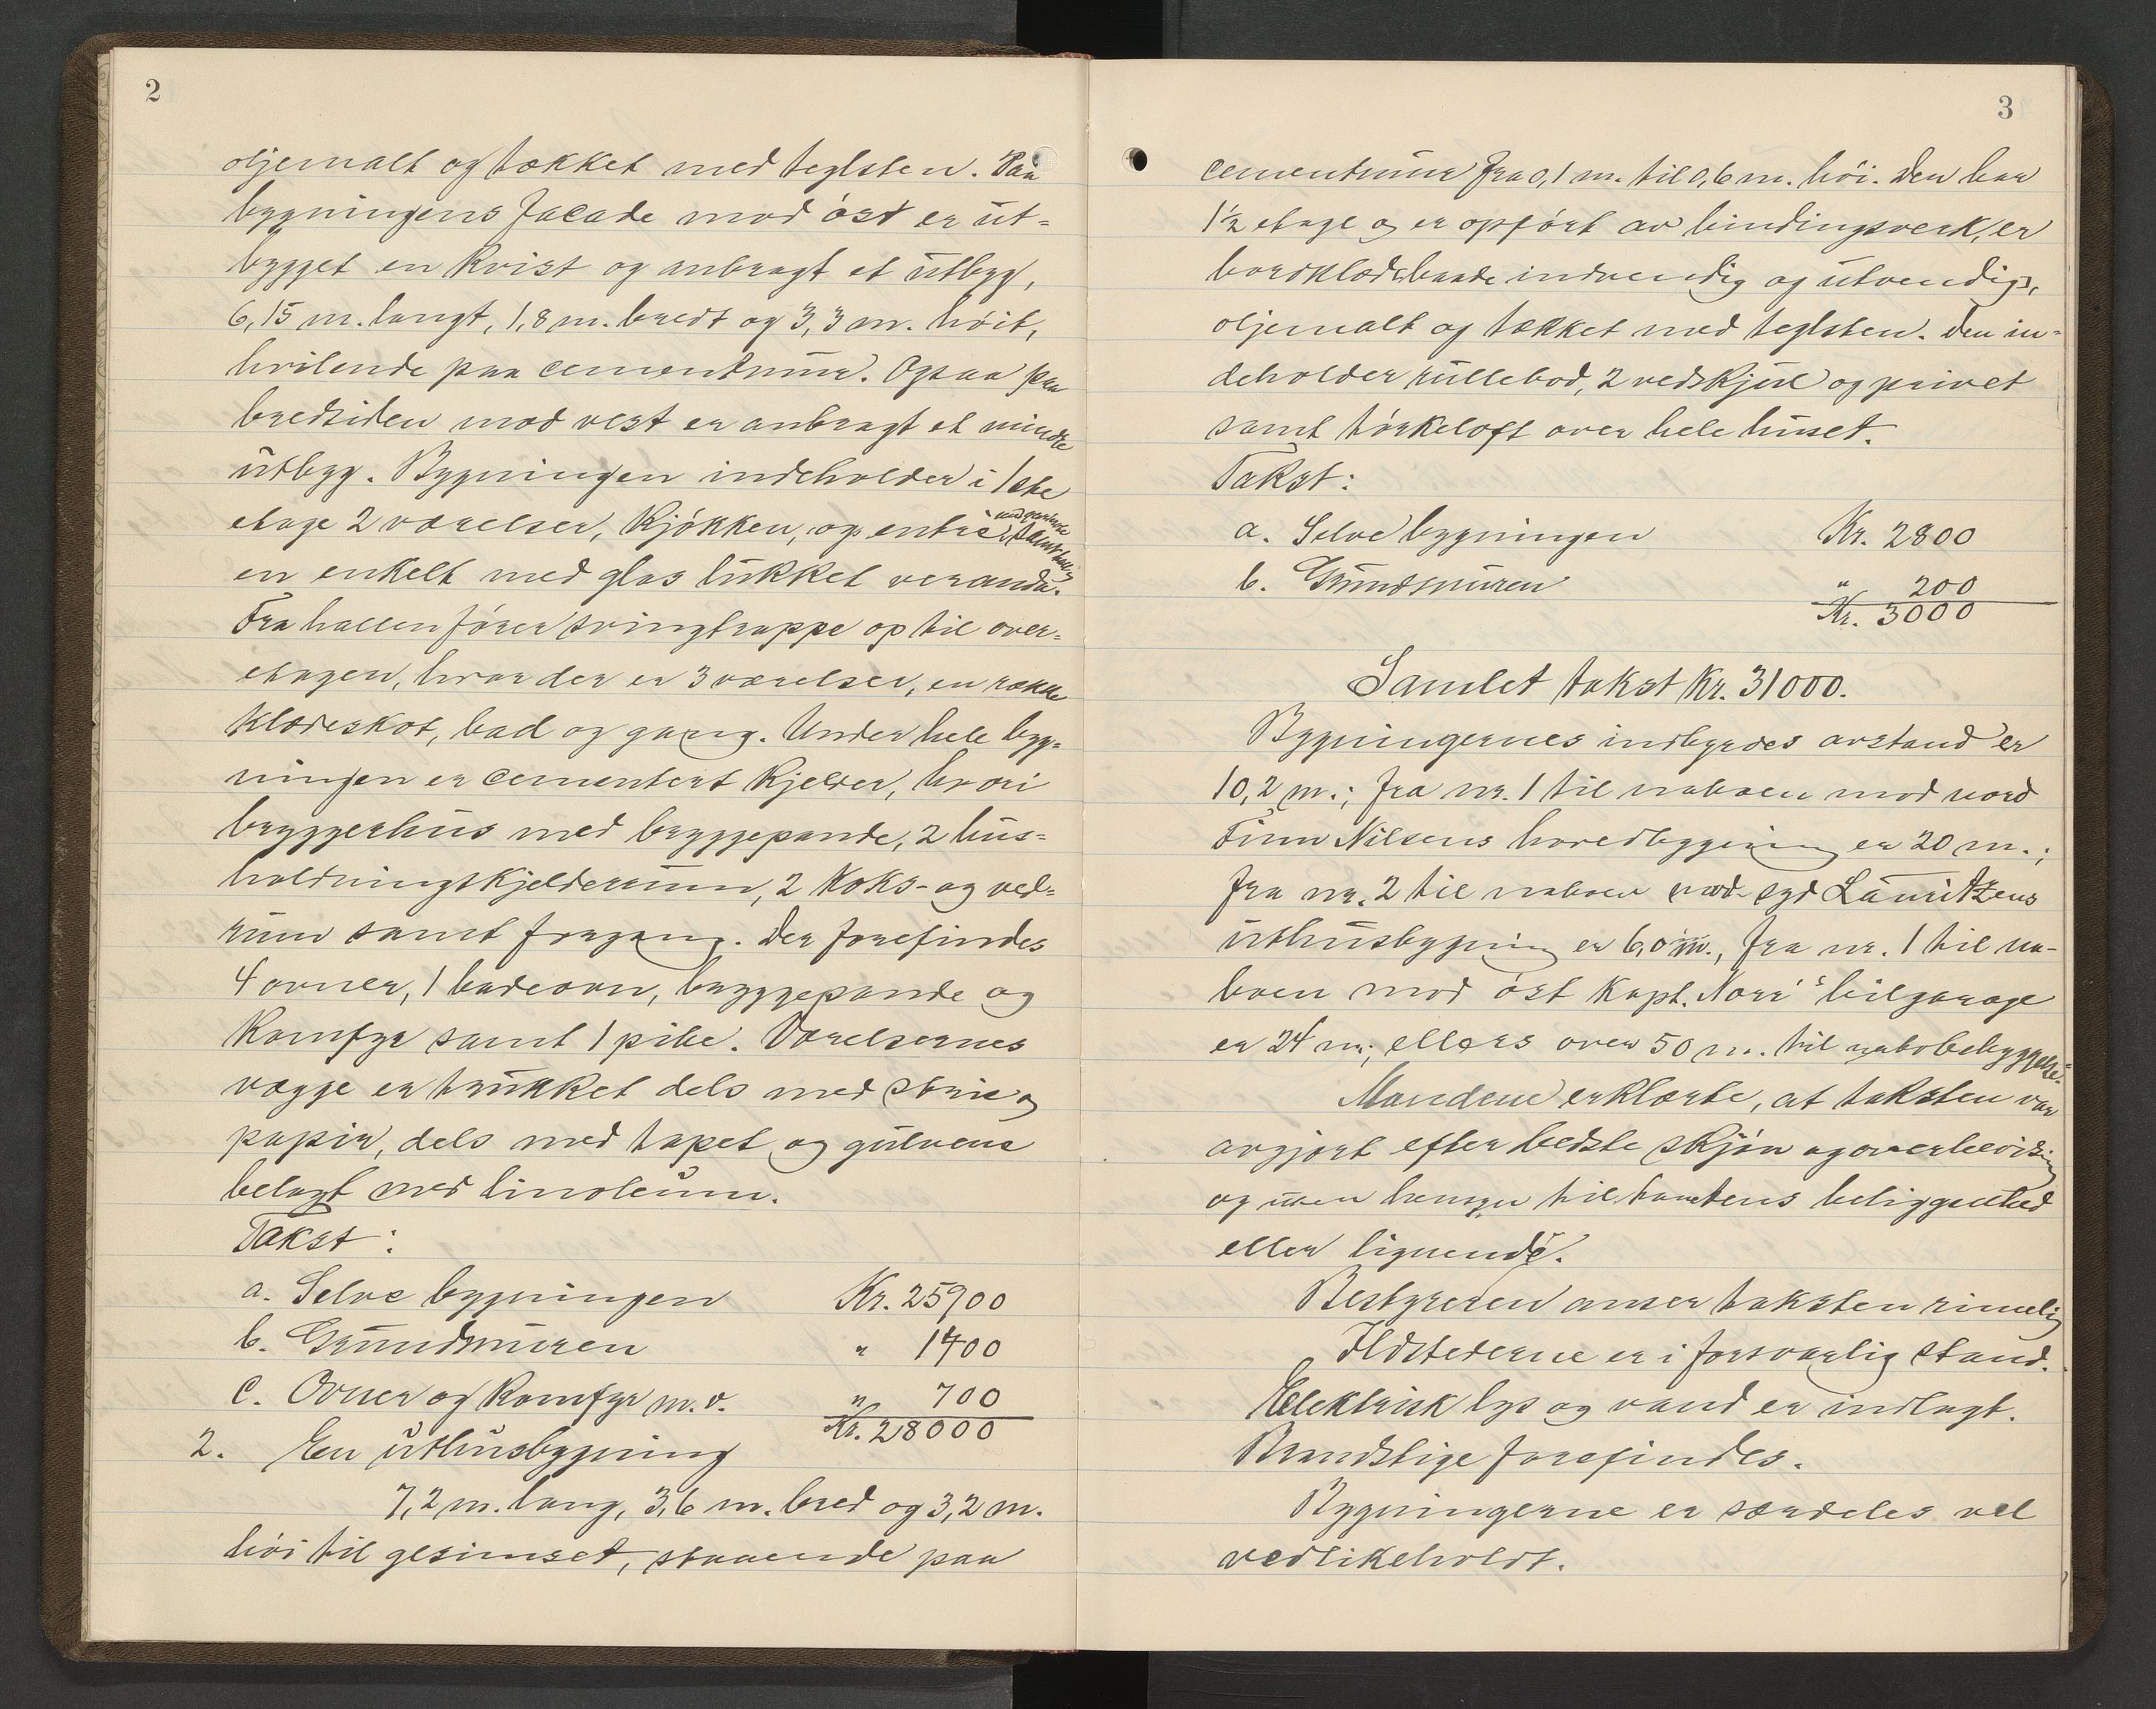 2
oljemalt og tækket med teglsten. Paa
bygningens facade mod øst er ut-
bygget en kvist og anbragt et utbyg,
6,15 m. langt, 1,8 m. bredt og 3,3 m. høit,
hvilende paa cementmur. Ogsaa paa
bredsiden mod vest er anbragt et mindre
utbyg. Bygningen indeholder i 1ste
etage 2 værelser, kjøkken, og entré samt hall og
en enkelt med glas lukket veranda.
Fra hallen fører svingtrappe op til over-
etagen, hvor der er 3 værelser, en række
klædeskot, bad og gang. Under hele byg-
ningen er cementert kjelder, hvori
bryggerhus med bryggepande, 2 hus-
holdningskjelderrum, 2 koks- og ved-
rum samt forgang. Der forefindes
4 ovner, 1 badeovn, bryggepande og
komfyr samt 1 pibe. Værelsernes
vægge er trukket dels med strie og
papir, dels med tapet og gulvene
belagt med linoleum.
Takst:
a. Selve bygningen Kr. 25900
b. Grundmuren " 1400
c. Ovner og komfyr m.v. " 700
Kr. 28000
2. En uthusbygning
7,2 m. lang, 3,6 m. bred og 3,2 m.
høi til gesimset, staaende paa
3
cementmur fra 0,1 m. til 0,6 m. høi. Den har
1½ etage og er opført av bindingsverk, er
bordklædt baade indvendig og utvendig,
oljemalt og tækket med teglsten. Den in-
deholder rullebod, 2 vedskjul og privet
samt tørkeloft over hele huset.
Takst:
a. Selve bygningen Kr. 2800
b. Grundmuren " 200
Kr. 3000
Samlet takst Kr. 31000.
Bygningernes indbyrdes avstand er
10,2 m.; fra nr. 1 til naboen mod nord
Finn Nilsens hovedbygning er 20 m.;
fra nr. 2 til naboen mod syd Lauritzens
uthusbygning er 6,0 m., fra nr. 1 til na-
boen mod øst Kapt. Norr's bilgarage
er 24 m.; ellers over 50 m. til nabobebyggelse.
Mændene erklærte, at taksten var
avgjort efter bedste skjøn og overbevisning
og uten hensyn til tomtens beliggenhed
eller lignende.
Bestyreren anser taksten rimelig
Ildstederne er i forsvarlig stand.
Elektrisk lys og vand er indlagt.
Brandstige forefindes.
Bygningerne er særdeles vel
vedlikeholdt.